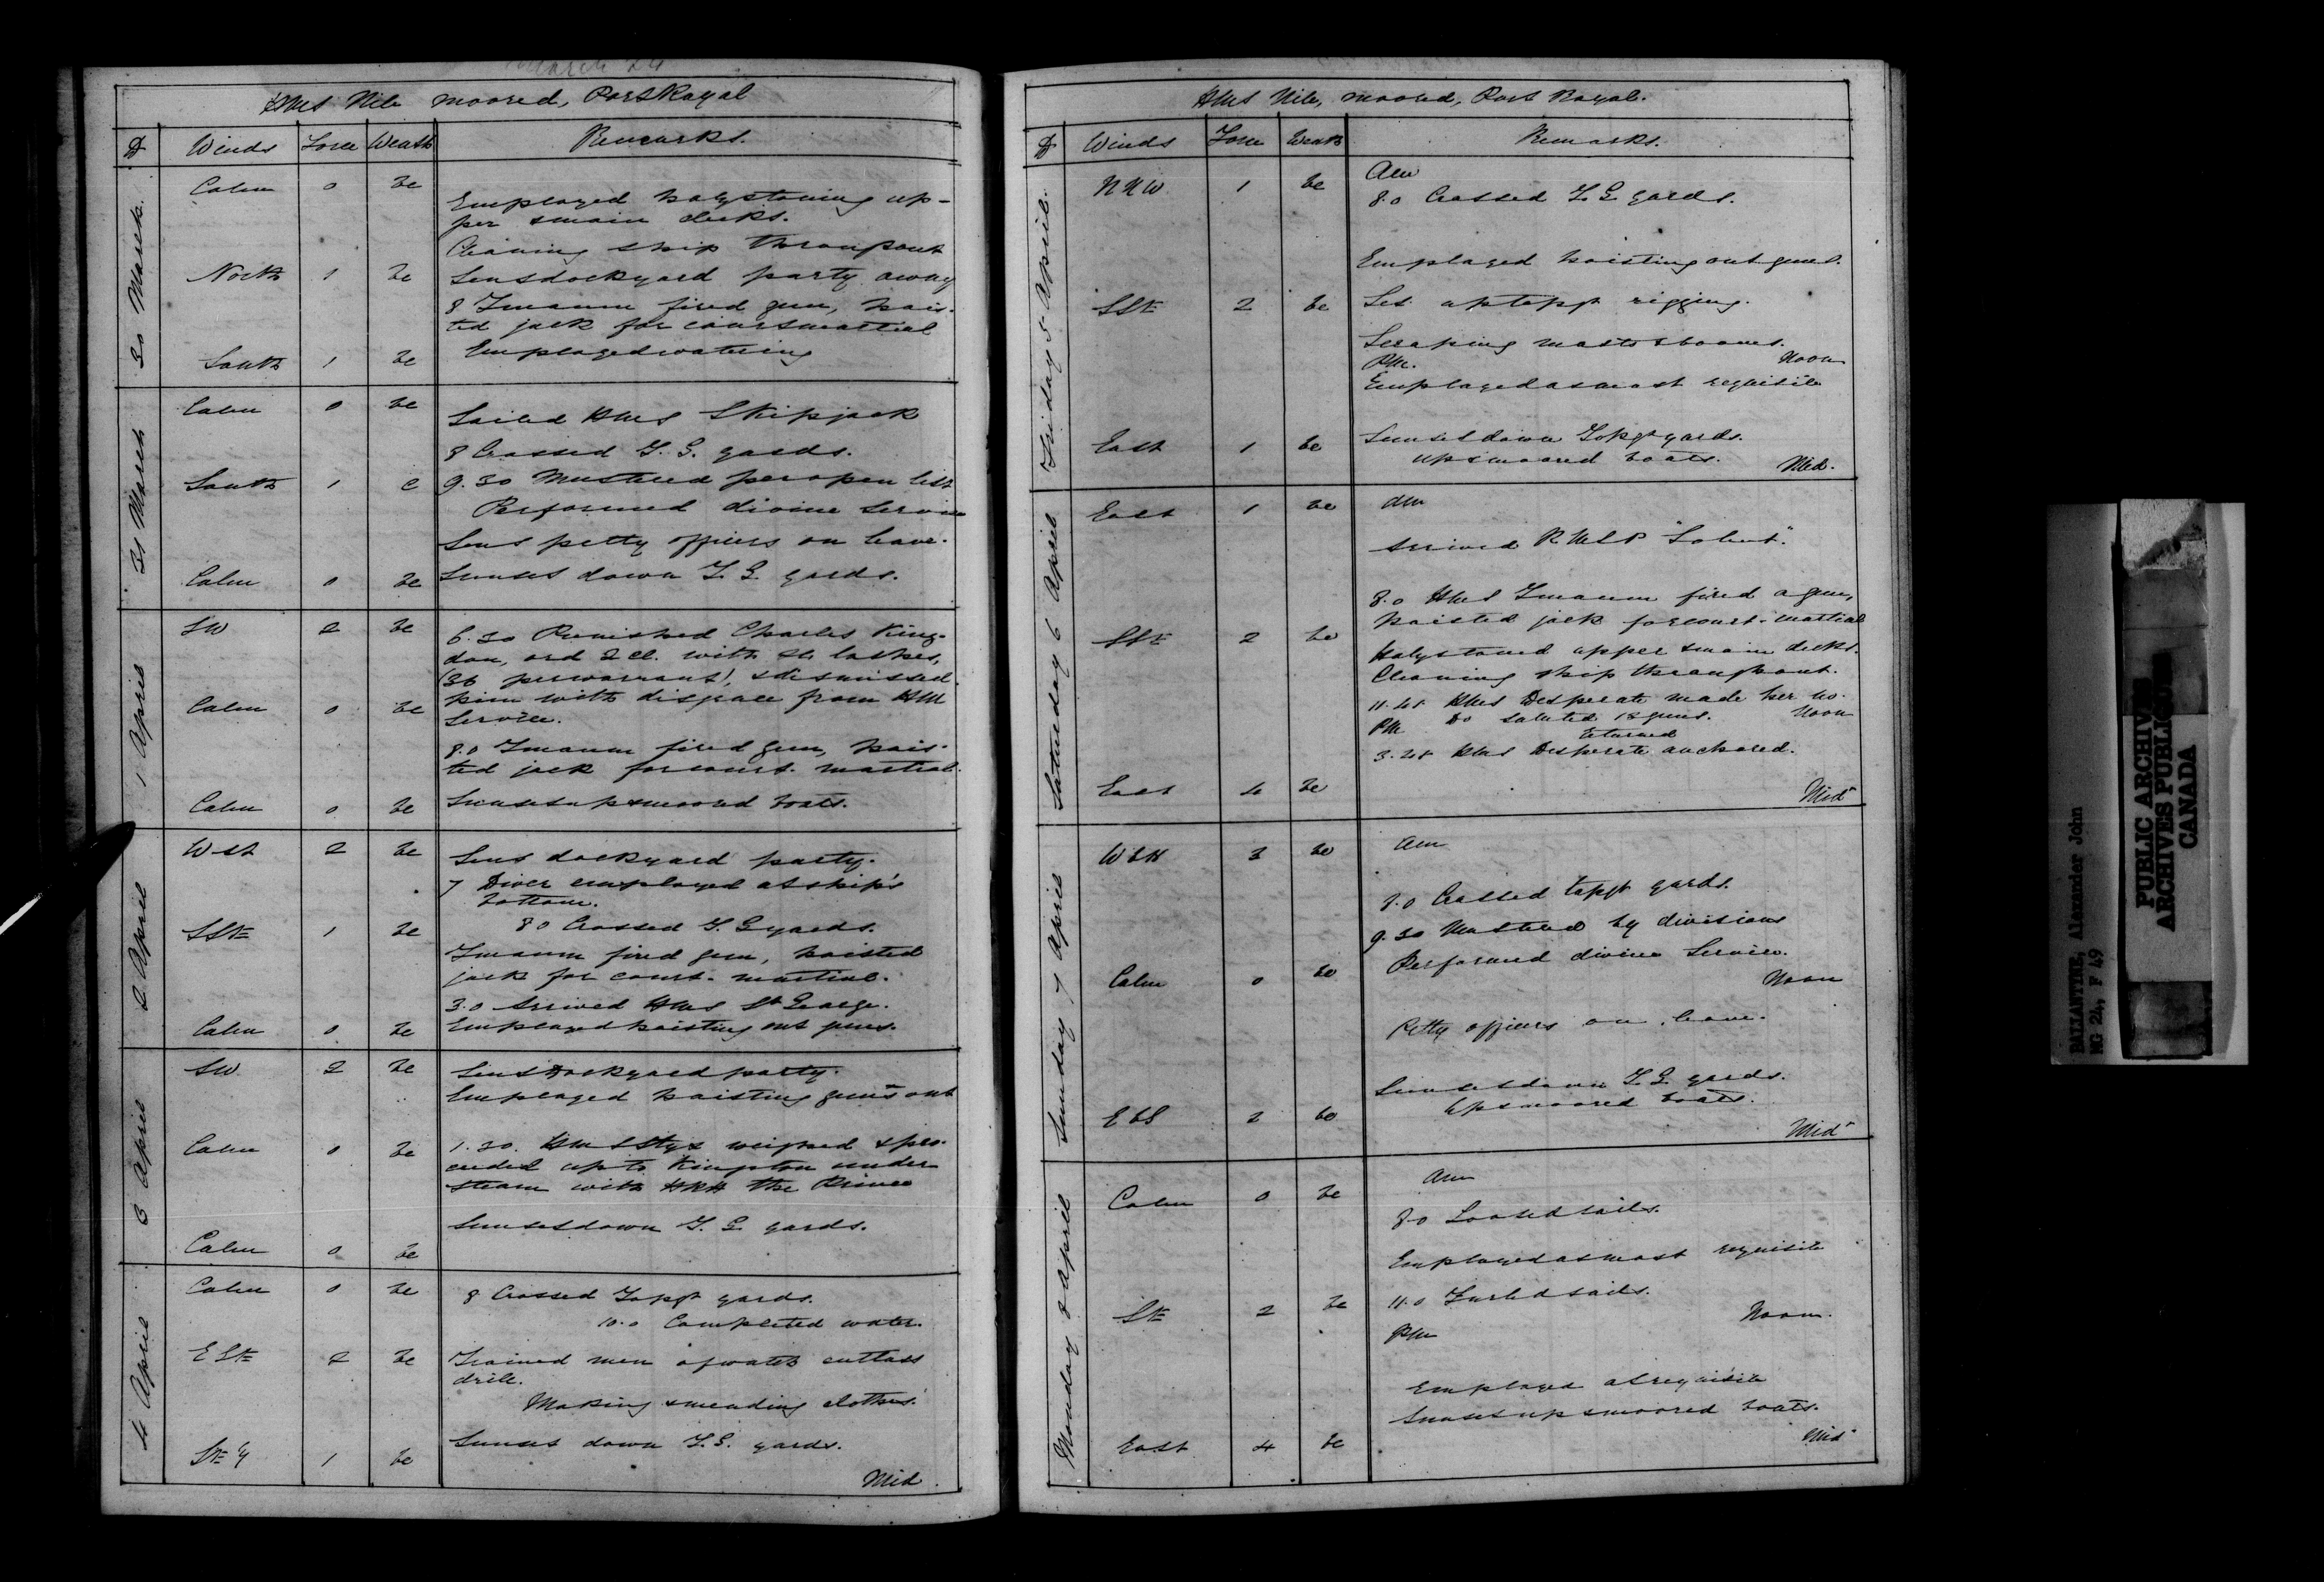 March 24
HMS Nile moored, Port Royal
D Winds Force Weath Remarks.
30 March.
Calm 0 bc
Employed holystoning up-
per & main decks.
Cleaning ship throughout
North 1 bc Sent dockyard party away
8 Imaum fired gun, hois-
ted jack for court martial
South 1 bc Employed watering
31 March
Calm 0 bc
Sailed HMS Skipjack
8 Crossed T. G. yards.
South 1 c 9.30 Mustered per open list
Performed divine service
Sent petty officers on leave.
Calm 0 bc Sunset down T. G. yards.
1 April
SW 2 bc 6.30 Punished Charles King-
don, ord 2 cl. with lashes,
(36 per warrant), & dismissed
Calm 0 bc him with disgrace from HM
Service.
8.0 Imaum fired gun, hois-
ted jack for court-martial.
Calm 0 bc Sunset up & moored boats.
2 April
West 2 bc Sent dockyard party.
7 Diver employed at ship's
bottom.
SSE 1 bc 8.0 Crossed T. G. yards.
Imaum fired gun, hoisted
jack for court-martial.
3.0 Arrived HMS St George.
Calm 0 bc Employed hoisting out guns.
3 April
SW 2 bc Sent Dockyard party.
Employed hoisting guns out
Calm 0 bc 1.30. HMS Styx weighed & pro-
ceeded up to Kingston under
steam with HRH the Prince
Sunset down T. G. yards.
Calm 0 bc
4 April
Calm 0 bc 8 Crossed Topgt yards.
10.0 Completed water.
ESE 2 bc Trained men of watch cutlass
drill.
Making & mending clothes.
Sunset down T. G. yards.
SE'ly 1 bc
Mid.
HMS Nile, moored, Port Royal.
D Winds Force Weath Remarks.
Friday 5 April.
NNW 1 bc Am
8.0 Crossed T. G. yards.
Employed hoisting out guns.
SSE 2 bc Set up topgt rigging.
Scraping masts & booms.
PM. Noon
Employed as most requisite
East 1 bc Sunset down Topgt yards.
up & moored boats. Mid.
Saturday 6 April
East 1 bc Am
Arrived RMSP "Solent".
8.0 HMS Imaum fired a gun,
hoisted jack for court-martial
SSE 2 bc Holystoned upper & main decks.
Cleaning ship throughout.
11.45 HMS Desperate made her no.
PM Do saluted 13 guns. Noon
Returned
3.45 HMS Desperate anchored.
East 4 bc
Mid
Sunday 7 April
WbN 3 bc Am
8.0 Crossed topgt yards.
9.30 Mustered by divisions
Performed divine Service.
Calm 0 bc Noon
Petty officers on leave.
Sunset down T. G. yards.
EbS 2 bc Up & moored boats.
Mid
Monday 8 April
Calm 0 bc Am
8.0 Loosed sails.
Employed as most requisite
SE 2 bc 11.0 Furled sails.
PM Noon.
Employed as requisite
Sunset up & moored boats.
East 4 bc Mid
BALLANTINE, Alexander John
MG 24, F 49
PUBLIC ARCHIVES
ARCHIVES PUBLIQUES
CANADA